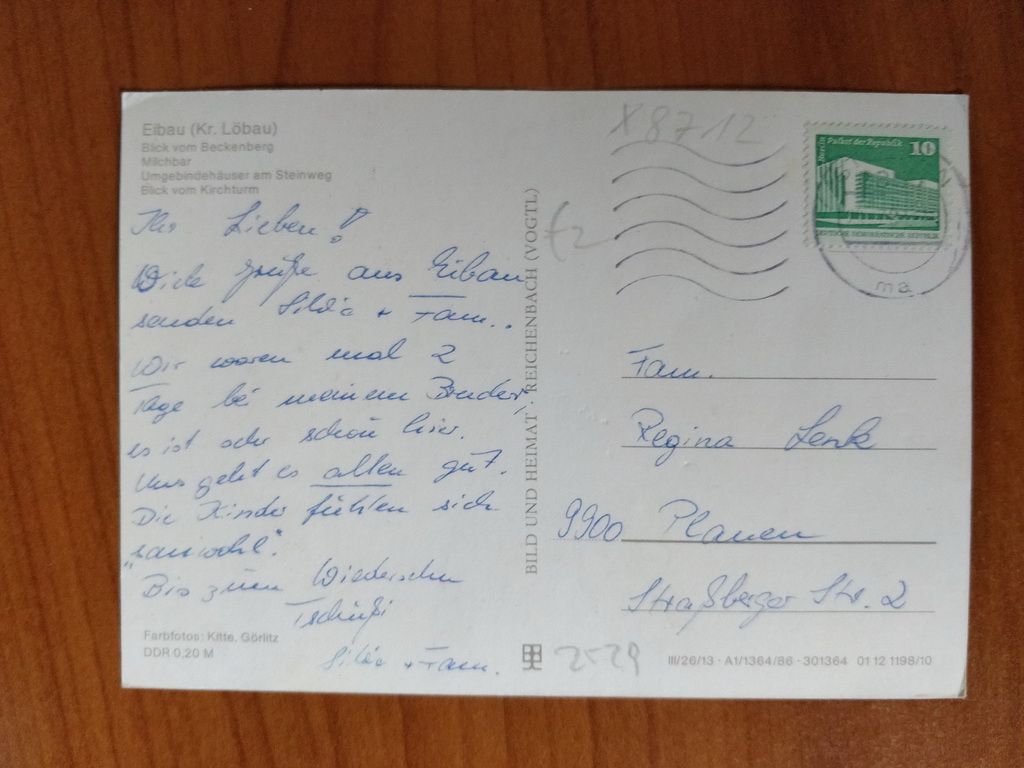 Eibau (Kr. Löbau)
Blick vom Beckenberg
Milchbar
Umgebindehäuser am Steinweg
Blick vom Kirchturm
Ihr Lieben!
Viele Grüße aus Eibau
senden Silvia + Fam..
Wir waren mal 2
Tage bei meinem Bruder,
es ist sehr schön hier.
Uns geht es allen gut.
Die Kinder fühlen sich
"sauwohl".
Bis zum Wiedersehn
Tschüßi
Silvia + Fam.
Farbfotos: Kitte, Görlitz
DDR 0,20 M
BILD UND HEIMAT · REICHENBACH (VOGTL)
X 87 12
Berlin Palast der Republik
10
DEUTSCHE DEMOKRATISCHE REPUBLIK
ma
Fam.
Regina Lenk
9900 Plauen
Straßberger Str. 2
2529
III/26/13 · A1/1364/86 · 301364 01 12 1198/10